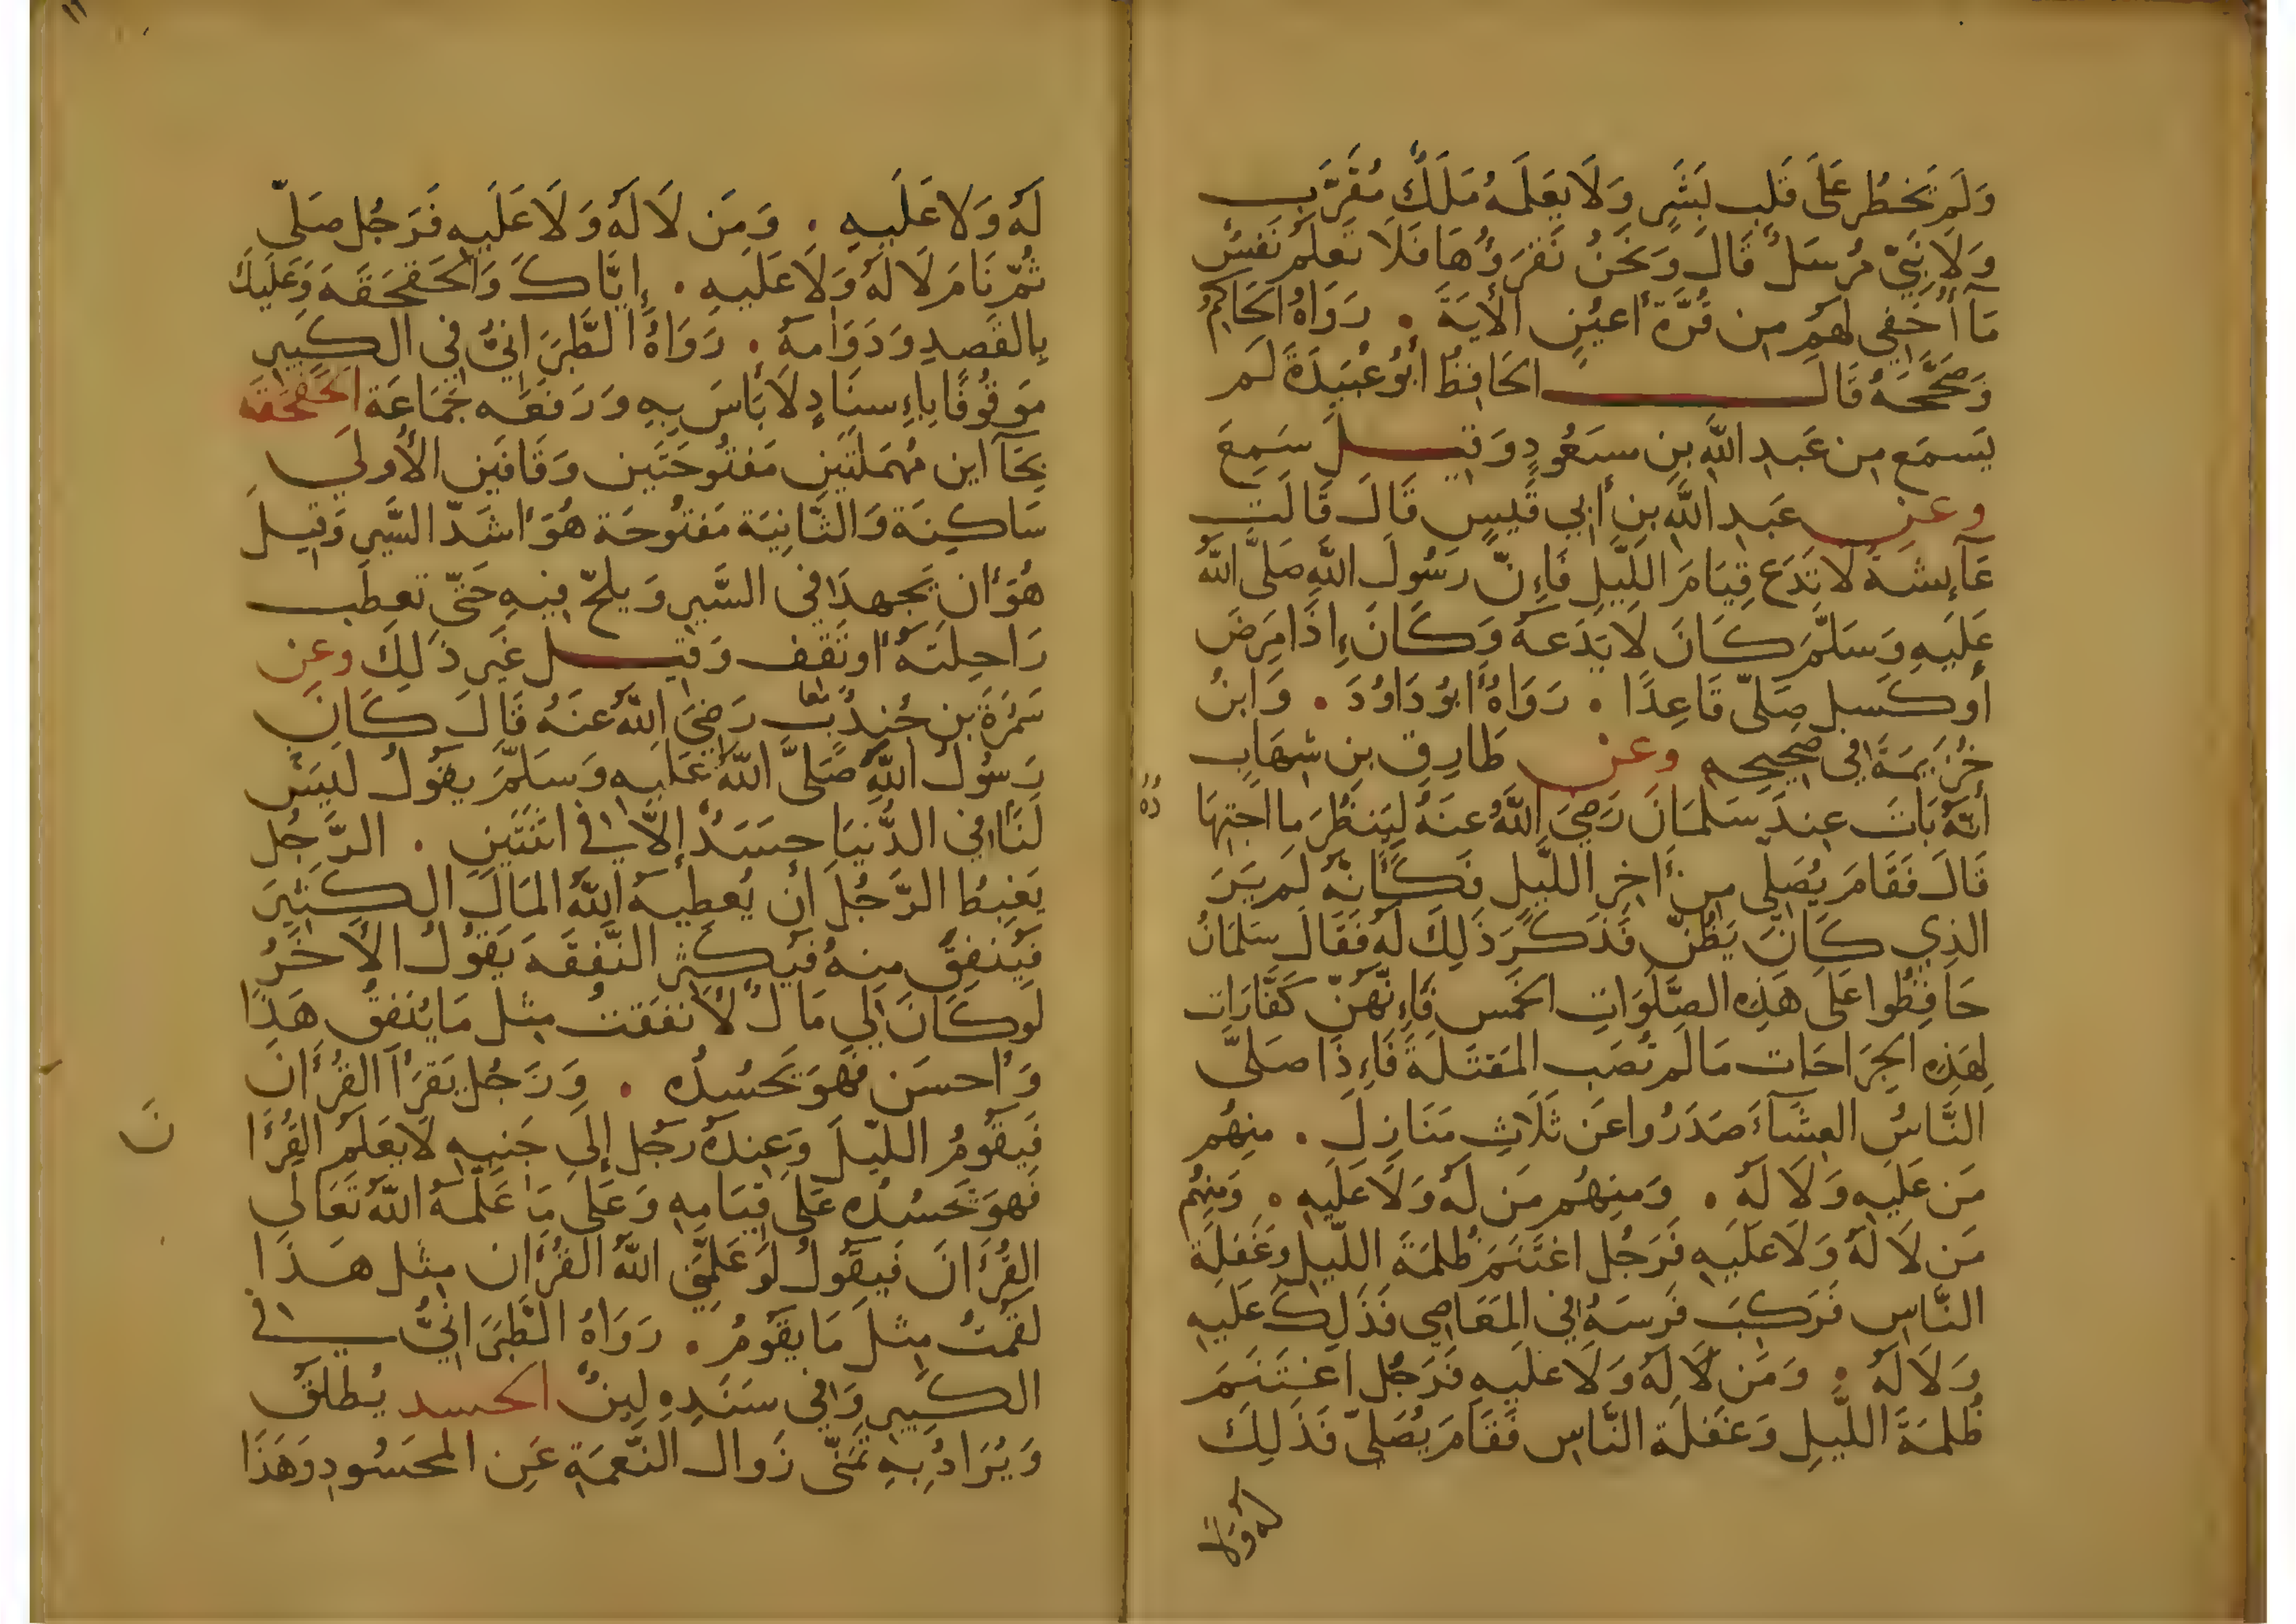 وَلَمْ تَخْطُر عَلَى قَلْبِ بَشَرٍ وَلَا يَعْلَمُهُ مَلَكٌ مُقَرَّب
وَلَا نَبِيّ مُرْسَلٌ قَالَ وَنَحْنُ نَقْرَؤُهَا فَلَا تَعْلَمُ نَفْسٌ
مَآ أُخْفِي لَهُم مِن قُرَّة أَعْيُنٍ الأيَةَ . رَوَاهُ الحَاكِمُ
وَصَحَّحَهُ قَالَ الحَافِظُ أَبُو عُبَيْدَةَ لَم
يَسْمَع مِن عَبدِ اللَّهِ بنِ مسعُودٍ وَقِيلَ سَمِعَ
وعن عَبدِ اللَّهِ بنِ أَبِي قَيسٍ قَالَ قَالَت
عَآئِشَةُ لَا تَدَع قِيَامَ اللَّيلِ فَإِنَّ رَسُولَ اللَّهِ صَلَّى اللَّهُ
عَلَيهِ وَسَلَّمَ كَانَ لَا يَدَعهُ وَكَانَ إِذَا مَرِضَ
أَو كَسِل صَلَّى قَاعِدًا . رَوَاهُ أَبُو دَاوُدَ . وَابنُ
خُزَيمَةَ فِي صَحِيحِهِ وعن طَارِق بنِ شِهَابٍ
أَنَّهُ بَاتَ عِندَ سَلمَانَ رَضِيَ اللَّهُ عَنهُ لِيَنظُرَ مَا اجتِهَا
دُهُ
قَالَ فَقَامَ يُصَلِّي مِن أَخِرِ اللَّيلِ فَكَأَنَّهُ لَم يَرَ
الذِي كَانَ يَظُنّ فَذَكَرَ ذَلِكَ لَهُ فَقَالَ سَلمَانُ
حَافِظُوا عَلَى هَذِهِ الصَّلَوَاتِ الخَمسِ فَإِنَّهُنّ كَفَّارَات
لِهَذِهِ الجِرَاحَات مَا لَم تُصَب المَقتَلَةَ فَإِذَا صَلَّى
النَّاسُ العِشَآءَ صَدَرُوا عَن ثَلَاثِ مَنَازِلَ . مِنهُم
مَن عَلَيهِ وَلَا لَهُ . وَمِنهُم مَن لَهُ وَلَا عَلَيهِ . وَمِنهُم
مَن لَا لَهُ وَلَا عَلَيهِ فَرَجُل اغتَنَمَ ظُلمَةَ اللَّيلِ وَغَفلَةَ
النَّاسِ فَرَكِبَ فَرسَهُ فِي المَعَاصِي فَذَلِكَ عَلَيهِ
وَلَا لَهُ . وَمَن لَا لَهُ وَلَا عَلَيهِ فَرَجُل اغتَنَمَ
ظُلمَةَ اللَّيلِ وَغَفلَةَ النَّاسِ فَقَامَ يُصَلِّي فَذَلِكَ
لَهُ وَلَا
١١
لَهُ وَلَا عَلَيهِ . وَمَن لَا لَهُ وَلَا عَلَيهِ فَرَجُل صَلَّى
ثُمّ نَامَ لَا لَهُ وَلَا عَلَيهِ . إِيَّاكَ وَالحَقحَقَة وَعَلَيكَ
بِالقَصدِ وَدَوَامهُ . رَوَاهُ الطَّبرَانِيُّ فِي الكَبِيرِ
مَوقُوفًا بِإِسنَادٍ لَا بَأسَ بِهِ وَرَفَعَه جَمَاعَة الحَقحَقَة
بِحَآاين مُهمَلَتَينِ مَفتُوحَتَين وَقَافَينِ الأُولَى
سَاكِنَة وَالثَّانِيَة مَفتُوحَة هُوَ أَشَدّ السَّيرِ وَقِيلَ
هُوَ أَن يَجهدَ فِي السَّيرِ وَيلحّ فِيهِ حَتَّى تعطَب
رَاحِلَتهُ أَو تَقف وَقِيل غَير ذَلِكَ وعن
سَمُرَةَ بنِ جُندُبٍ رَضِيَ اللَّهُ عَنهُ قَالَ كَانَ
رَسُولُ اللَّهِ صَلَّى اللَّهُ عَلَيهِ وَسَلَّمَ يقُولُ لَيسَ
لَنَا فِي الدُّنيَا حَسَدٌ إِلَّا فِي اثنَتَينِ . الرَّجُل
يَغبِطُ الرَّجُلَ أَن يُعطِيهُ اللَّهُ المَالَ الكَثِيرَ
فَيُنفِقُ مِنهُ فَيُكثِر النَّفَقَة يَقُولُ الأَخَرُ
لَو كَانَ لِي مَالٌ لَأَنفَقتُ مِثل مَا يُنفِقُ هَذَا
وَأَحسَن فَهوَ يَحسُدُه . وَرَجُل يَقرَأُ القُرءَان
فَيقُومُ اللَّيلَ وَعِندهُ رَجُل إِلَى جَنبِهِ لَا يَعلَم القُرءَا
نَ
فَهوَ يَحسُدُه عَلَى قِيَامِهِ وَعَلَى مَا عَلَّمَهُ اللَّهُ تَعَالَى
القُرءَانَ فَيَقُولُ لَو عَلَّمَنِي اللَّهُ القُرءَان مِثل هَذَا
لَقُمتُ مِثلَ مَا يَقُومُ . رَوَاهُ الطَّبرَانِيُّ فِي
الكَبِيرِ وَفِي سَنَدِهِ لِينٌ الحسد يُطلَقُ
وَيُرَادُ بِهِ تَمَنِّي زَوال النِّعمَةِ عَنِ المَحسُودِ وَهَذَا